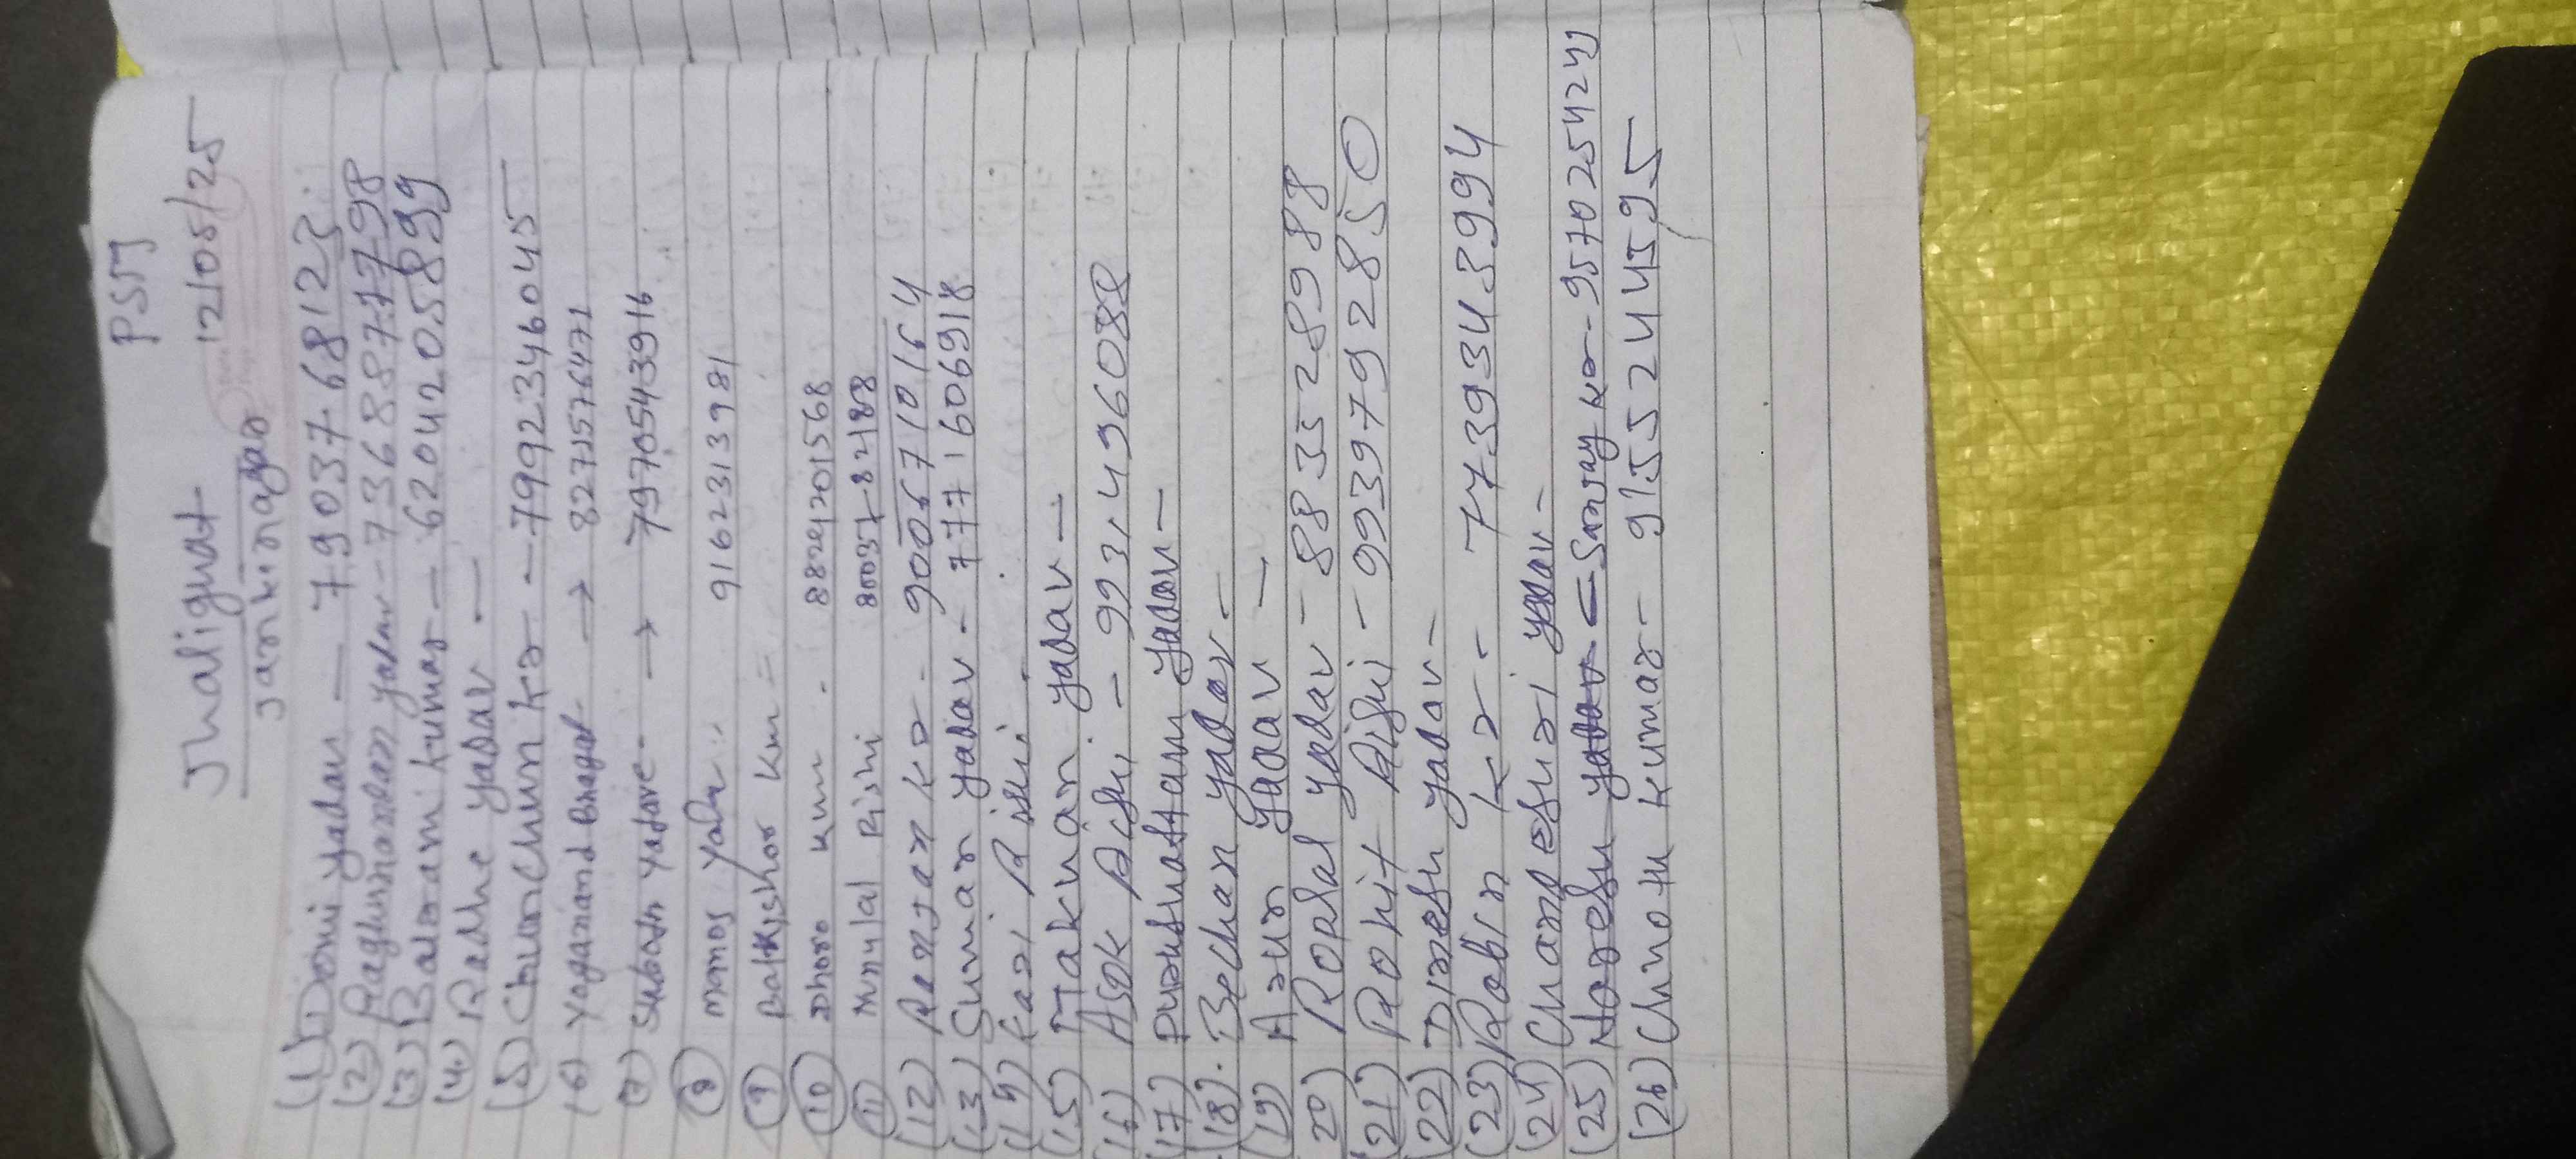 PSM
Jhalighat 12/05/25
Jankinagar
(1) Domi yadav — 7903768123
(2) Raghunandan yadav - 7368877798
(3) Balram kumar — 6204205899
(4) Radhe yadav —
(5) Chunchun kr — 7992346045
(6) Yoganand Bhagat → 8271576471
(7) Subodh Yadave → 7970543916
(8) manoj Yadav 9162313981
(9) Balkishor Kum =
(10) Kum - 8824201568
(11) Munulal Rishi
(12) Ranjan kr - 9006710164
(13) Suman yadav - 7771606918
(14) Rishi -
(15) Makhan yadav —
(16) Asok Rishi - 9931496088
(17) Purushattam yadav —
(18) Bechan yadav -
(19) Arun yadav —
20) Ropal yadav - 8835289 88
(21) Rohit Rishi - 9939792850
(22) Dinesh yadav -
(23) Robin kr - 7739343994
(24) Chandeshri yadav -
(25) Naresh yadav — Sanjay kr - 957025424
(26) Chhotu kumar - 9155244595